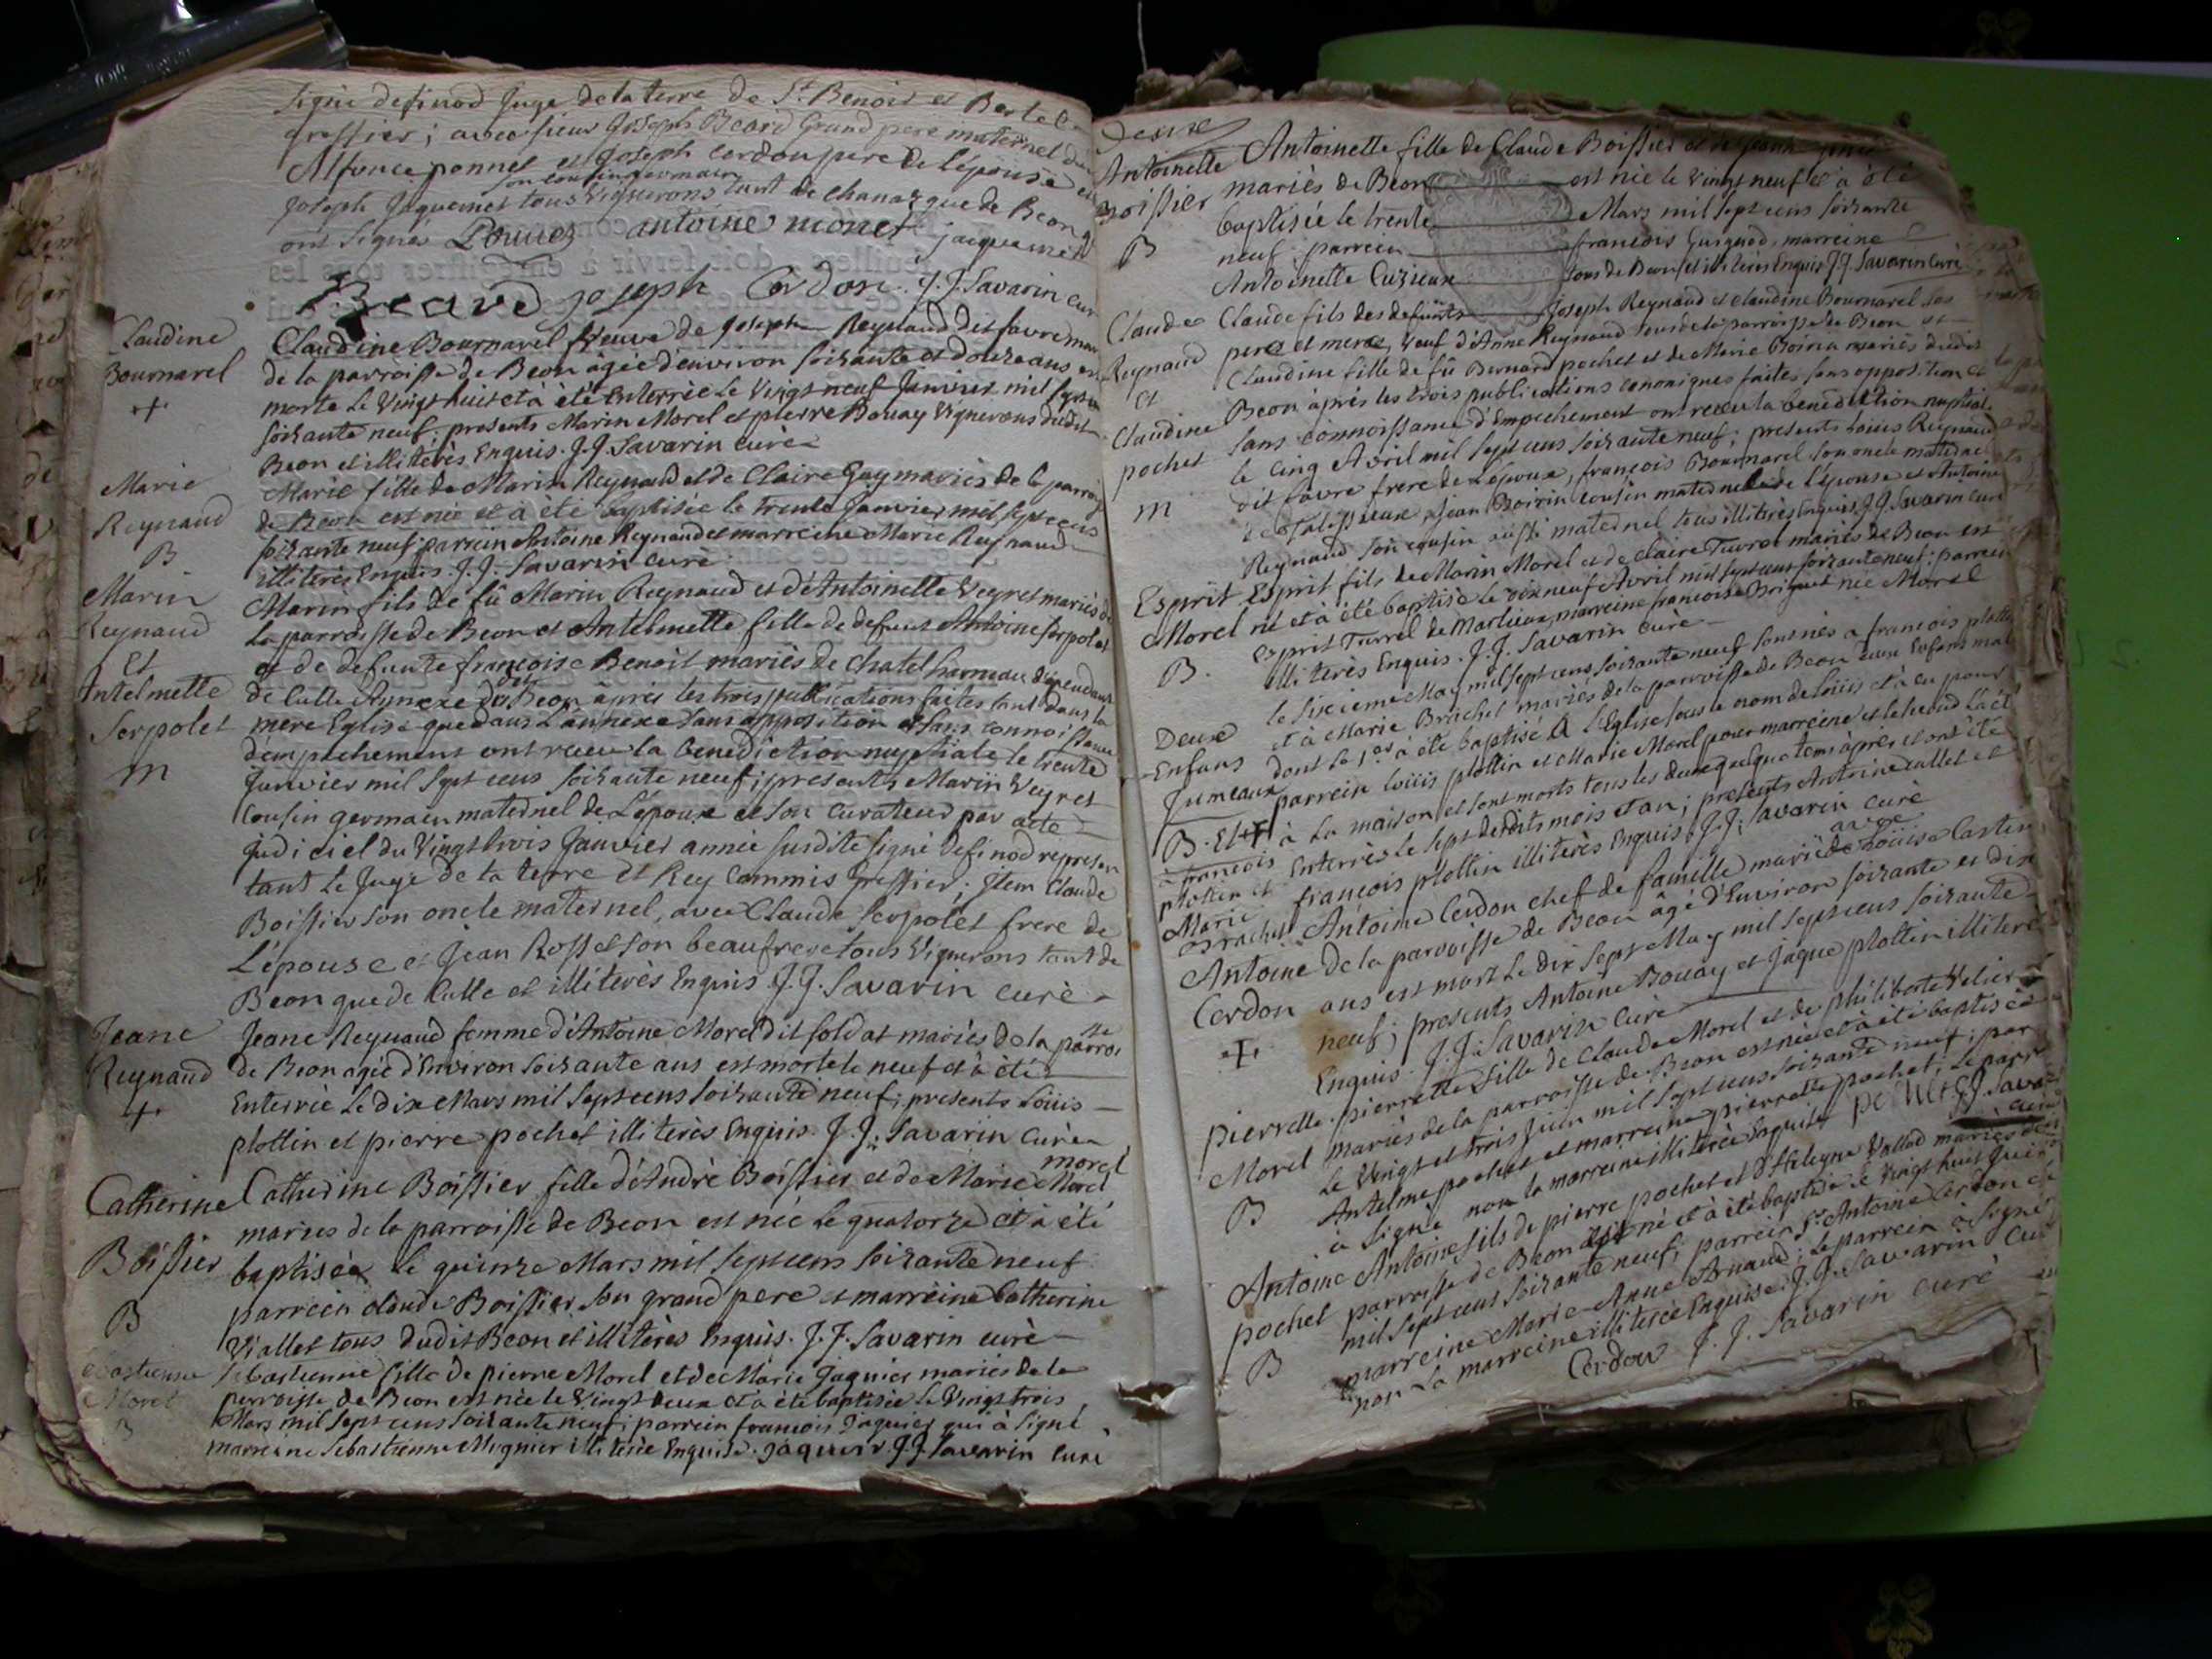 signé definod Juge de la terre de St. Benoit et Bertel
greffier; avec sieur Joseph Beard Grand pere maternel
Alfonce ponnet et Joseph cordon pere de l'épouse et
son cousin germain
Joseph Jaquemet tous vignerons tant de Chanaz que de Beon q
ont signés antoine monet jaquemet
Beard joseph Cordon. J.J. Savarin cur
Claudine
Bournarel
+
Claudine Bournarel veuve de Joseph Reynaud dit favre
de la parroisse de Beon âgée d'environ soixante et douze ans est
morte le vingt huit et à été Enterrée le vingt neuf Janvier mil sept
soixante neuf; presents Marin Morel et pierre Bouay vignerons dudit
Beon et illiterés Enquis. J.J. Savarin curé
Marie
Reynaud
B
Marie fille de Marin Reynaud et de Claire Gay mariés de la parrois
de Beon est née et à été baptisée le trente Janvier mil sept cens
soixante neuf parrein Antoine Reynaud et marreine Marie Reynaud
illiterés Enquis. J.J. Savarin curé
Marin
Reynaud
Et
Antelmette
Serpolet
m
Marin fils de fû Marin Reynaud et d'Antoinette Veyret mariés de
la parroisse de Beon et Antelmette fille de defunt Antoine serpolet
et de defunte françoise Benoit mariés de Chatel hameau dépendant
de Culle Annexe de Beon après les trois publications faites tant dans la
mere Eglise que dans l'annexe sans opposition et sans connoissance
d'empechement ont receu la benediction nuptiale le trente
Janvier mil sept cens soixante neuf; presents Marin Veyret
Cousin germain maternel de l'époux et son curateur par acte
judiciel du vingt trois Janvier année susdite signé definod represen
tant le Juge de la terre et Rey Commis Greffier; Item Claude
Boissier son oncle maternel, avec Claude serpolet frere de
l'épouse et Jean Rosset son beaufrere tous vignerons tant de
Beon que de Culle et illiterés Enquis. J.J. Savarin curé
Jeane
Reynaud
+
Jeane Reynaud femme d'Antoine Morel dit soldat mariés de la parrois
de Beon agée d'Environ soixante ans est morte le neuf et à été
Enterrée le dix Mars mil sept cens soixante neuf; presents Loüis
plottin et pierre pochet illiterés Enquis. J.J. Savarin curé
Catherine
Boissier
B
Catherine Boissier fille d'André Boissier et de Marie Morel
morel
mariés de la parroisse de Beon est née le quatorze et à été
baptisée le quinze Mars mil sept cens soixante neuf
parrein claude Boissier son grand pere et marreine Catherine
Viallet tous dudit Beon et illiterés Enquis. J.J. Savarin curé
Sebastienne
Morel
B
Sebastienne fille de pierre Morel et de Marie Jaquier mariés de la
parroisse de Beon est née le vingt deux et à été baptisée le vingt trois
Mars mil sept cens soixante neuf; parrein francois Jaquier qui à signé
marreine Sebastienne Mugnier illiterée Enquise. jaquier. J.J. Savarin curé
Deux
Antoinette
Boissier
B
Antoinette fille de Claude Boissier et de Jeane
mariés de Beon est née le vingt neuf et à été
baptisée le trente Mars mil sept cens soixante
neuf; parrein francois Guignod, marreine
Antoinette Cuzieux tous de Beon et illiterés Enquis J.J. Savarin curé
Claude
Reynaud
Et
Claudine
pochet
m
Claude fils des defunts Joseph Reynaud et Claudine Bournarel ses
pere et mere, veuf d'Anne Reynaud tous de la parroisse de Beon et
Claudine fille de fû Bernard pochet et de Marie Boirin mariés dudit
Beon après les trois publications canoniques faites sans opposition et
sans connoissance d'Empechement ont receu la benediction nuptial
le cinq Avril mil sept cens soixante neuf; presents Loüis Reynaud
dit favre frere de l'époux, françois Bournarel son oncle maternel
de Talissieux, jean Boirin cousin maternel de l'épouse et Antoine
Reynaud son cousin aussi maternel tous illiterés Enquis J.J. Savarin curé
Esprit
Morel
B.
Esprit fils de Marin Morel et de claire Turrel mariés de Beon est
né et à été baptisé le dix neuf Avril mil sept cens soixante neuf: parrein
Esprit Turrel de Marlieux, marreine francoise Briguet née Morel
illiterés Enquis. J.J. Savarin curé
Deux
Enfans
Jumeaux
B. Et +
à francois
plottin et
Marie
Brachet
le sixieme May mil sept cens soixante neuf sont nés a francois plotti
et à Marie Brachet mariés de la parroisse de Beon deux Enfans mal
dont le 1er à été baptisé à l'Eglise sous le nom de loüis et à eu pour
parrein loüis plottin et Marie Morel pour marreine et le second l'a ét
à la maison et sont morts tous les deux quelque tems après et ont été
Enterrés le sept desdits mois et an; presents Antoine callet et
francois plottin illiterés Enquis. J.J. Savarin curé
Antoine
Cerdon
+
Antoine Cerdon chef de famille marié avec Loüise Castin
de la parroisse de Beon âgé d'Environ soixante et dix
ans est mort le dix sept May mil sept cens soixante
neuf; presents Antoine Bouay et Jaque plottin illiteré
Enquis. J.J. Savarin curé
pierrette
Morel
B
pierrette fille de Claude Morel et de philiberte Velier
mariés de la parroisse de Beon est née et à été baptisée
le vingt et trois Juin mil sept cens soixante neuf; par
Antelme pochet et marreine pierrette pochet; le parr
à signé non la marreine illiterée Enquise pochet J.J. Sava
curé
Antoine
pochet
B
Antoine fils de pierre pochet et d'Heleyne Vallod mariés de
parroisse de Beon est né et à été baptisé le vingt huit Juin
mil sept cens soixante neuf; parrein Sr. Antoine Cerdon et
marreine Marie Anne Arnaud; le parrein à signé
non la marreine illiterée Enquise. J.J. Savarin Cur
Cerdon J.J. Savarin curé